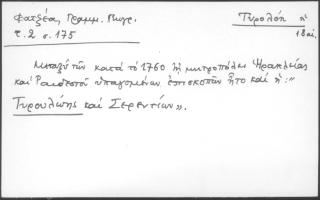 Φατζέα, Γραμμ. Πληρ.
τ. 2 σ. 175
Τυρολόη ἡ
18 αἰ.
Μεταξὺ τῶν κατὰ τὸ 1760 τῇ μητροπόλει Ἡρακλείας
καὶ Ραιδεστοῦ ὑπαγομένων ἐπισκοπῶν ἦτο καὶ ἡ: "
Τυρουλώης καὶ Σερεντίων».